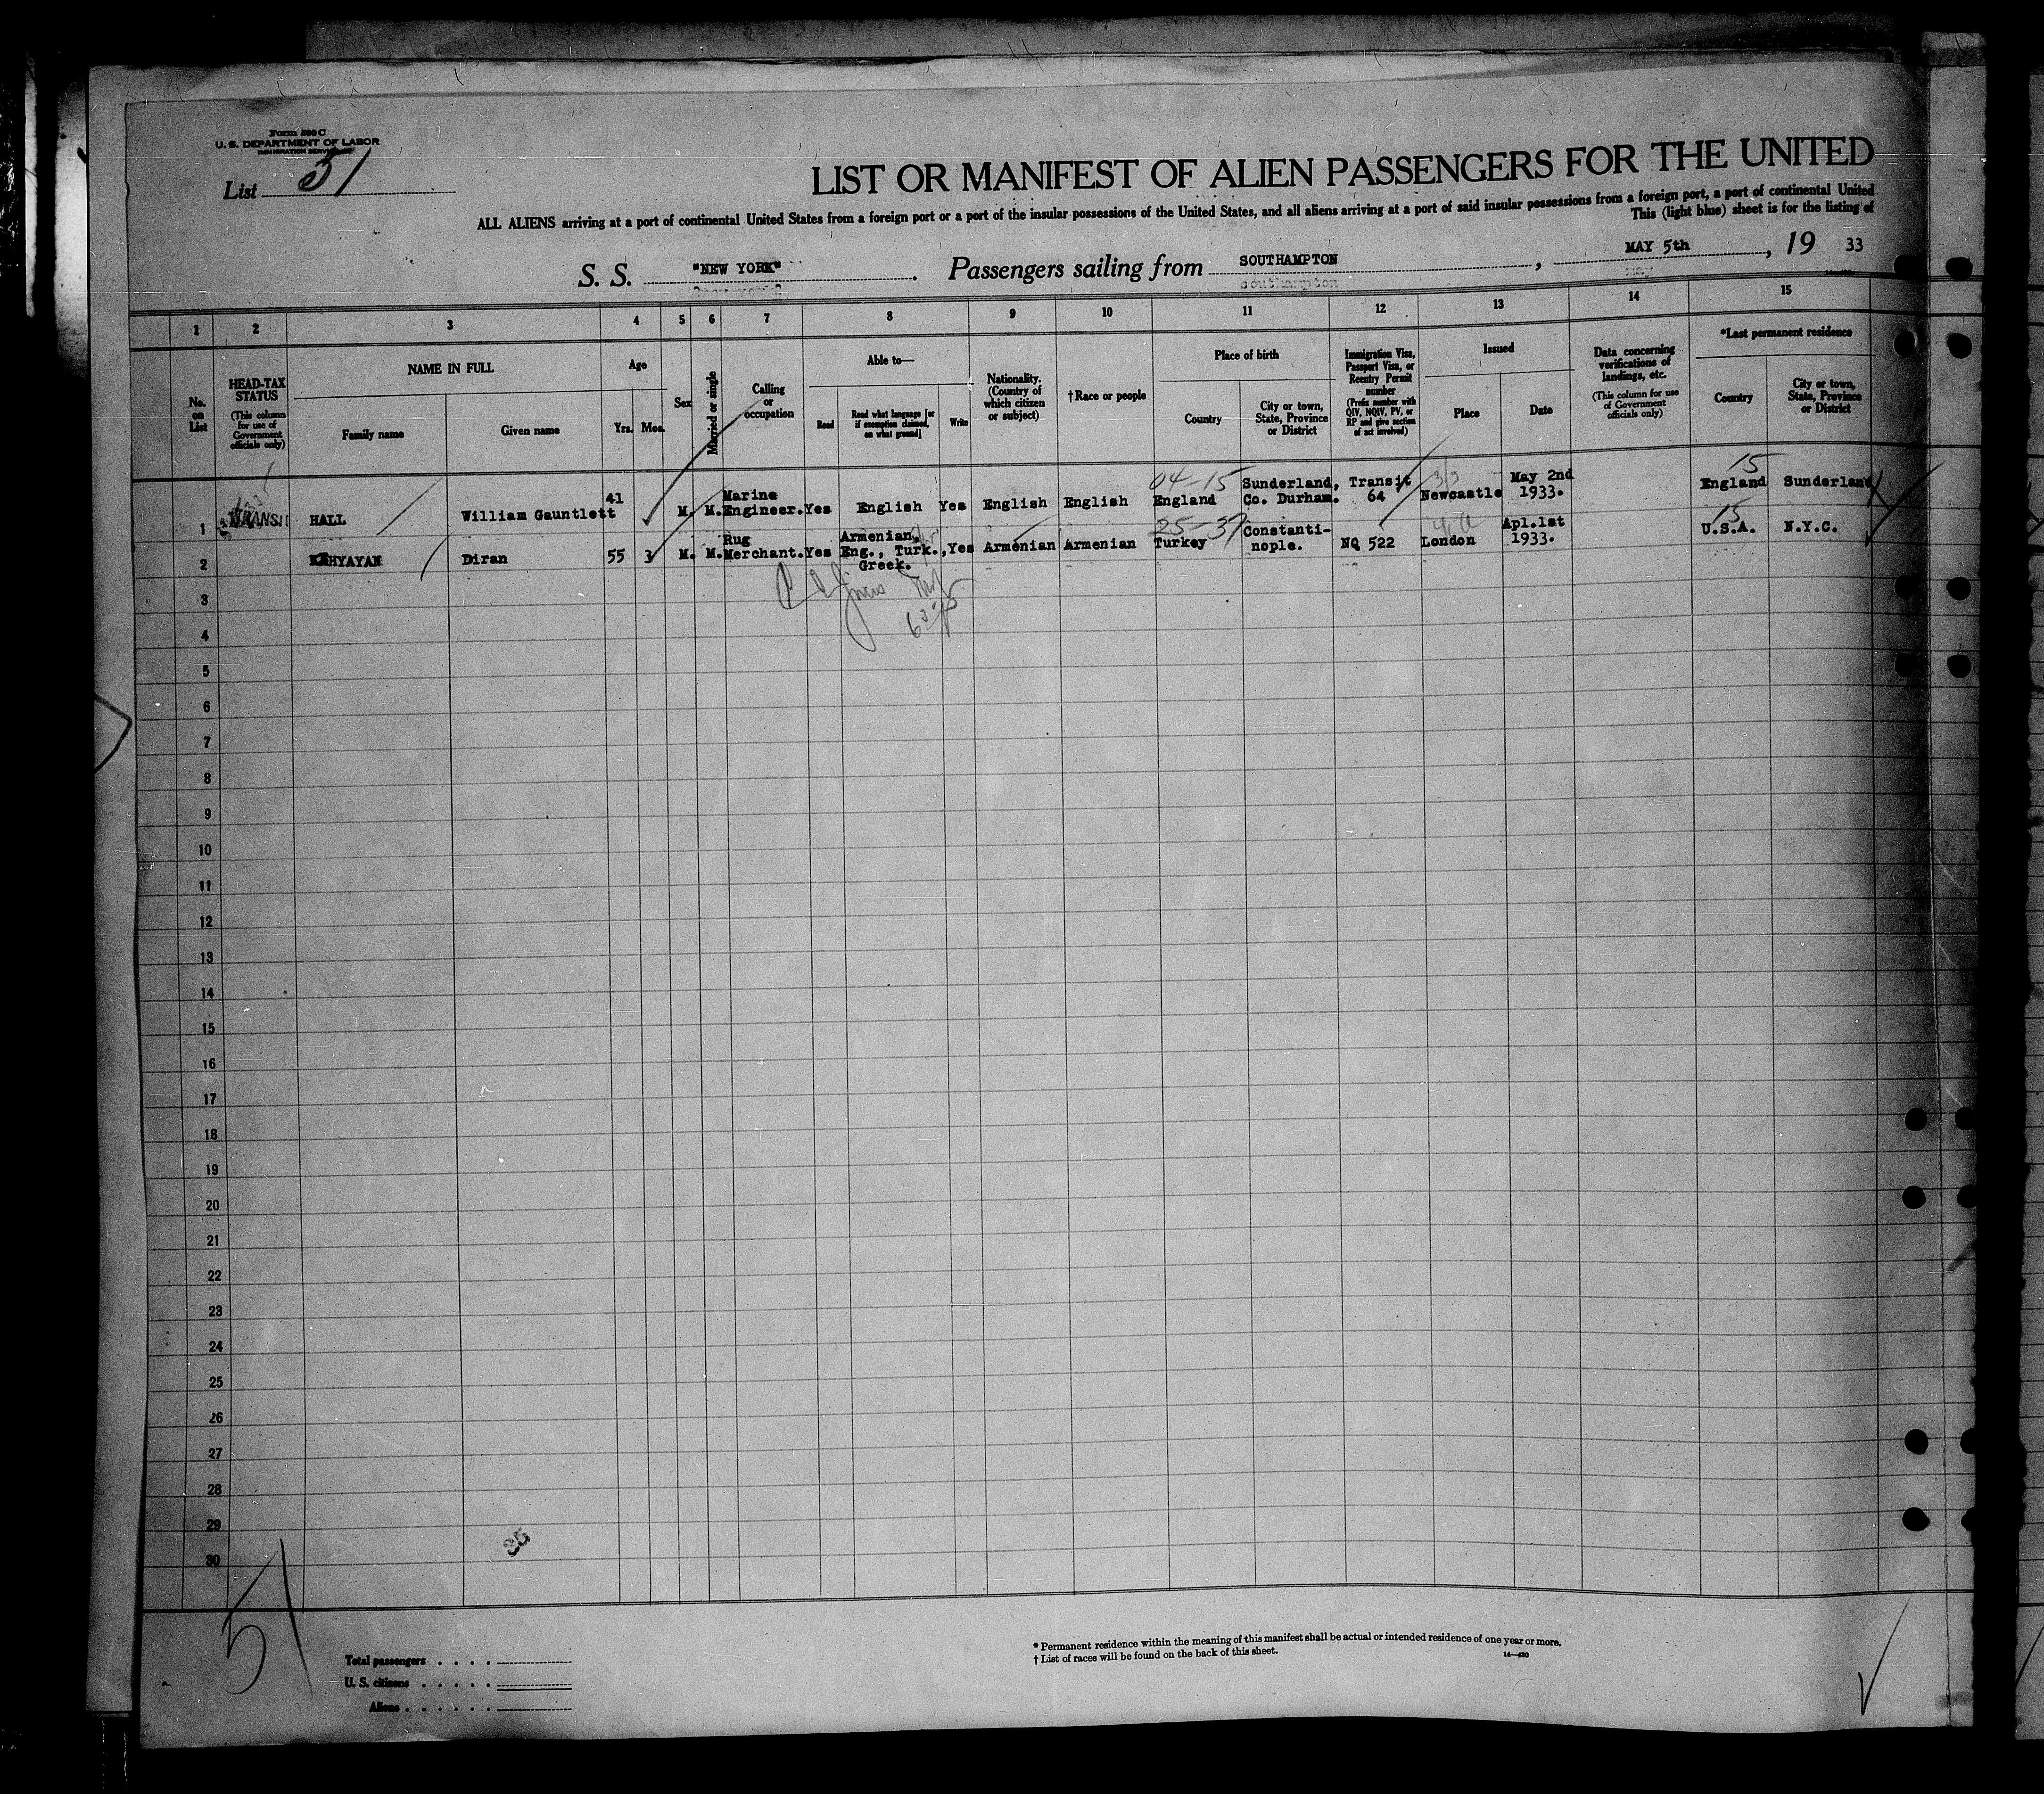 Form 500 C
U. S. DEPARTMENT OF LABOR
IMMIGRATION SERVICE
List 51
LIST OR MANIFEST OF ALIEN PASSENGERS FOR THE UNITED
ALL ALIENS arriving at a port of continental United States from a foreign port or a port of the insular possessions of the United States, and all aliens arriving at a port of said insular possessions from a foreign port, a port of continental United
This (light blue) sheet is for the listing of
S. S. "NEW YORK" . Passengers sailing from SOUTHAMPTON , MAY 5th , 19 33
1 2 3 4 5 6 7 8 9 10 11 12 13 14 15
No. on List
HEAD-TAX STATUS
(This column for use of Government officials only)
NAME IN FULL
Family name
Given name
Age
Yrs. Mos.
Sex
Married or single
Calling or occupation
Able to—
Read
Read what language [or if exemption claimed, on what ground]
Write
Nationality. (Country of which citizen or subject)
†Race or people
Place of birth
Country
City or town, State, Province or District
Immigration Visa, Passport Visa, or Reentry Permit number
(Prefix number with QIV, NQIV, PV, or RP and give section of act involved)
Issued
Place
Date
Data concerning verifications of landings, etc.
(This column for use of Government officials only)
*Last permanent residence
Country
City or town, State, Province or District
1 TRANSIT HALL William Gauntlett 41 M. M. Marine Engineer. Yes English Yes English English 04-15 England Sunderland, Co. Durham. Transit 64 Newcastle May 2nd 1933. 15 England Sunderland
2 KAHYAYAN Diran 55 3 M. M. Rug Merchant. Yes Armenian, Eng., Turk., Greek. Yes Armenian Armenian 25-37 Turkey Constanti-nople. NQ 522 London Apl.1st 1933. 15 U.S.A. N.Y.C.
3
4
5
6
7
8
9
10
11
12
13
14
15
16
17
18
19
20
21
22
23
24
25
26
27
28
29
30
51
Total passengers
U. S. citizens
Aliens
* Permanent residence within the meaning of this manifest shall be actual or intended residence of one year or more.
† List of races will be found on the back of this sheet.
14—430